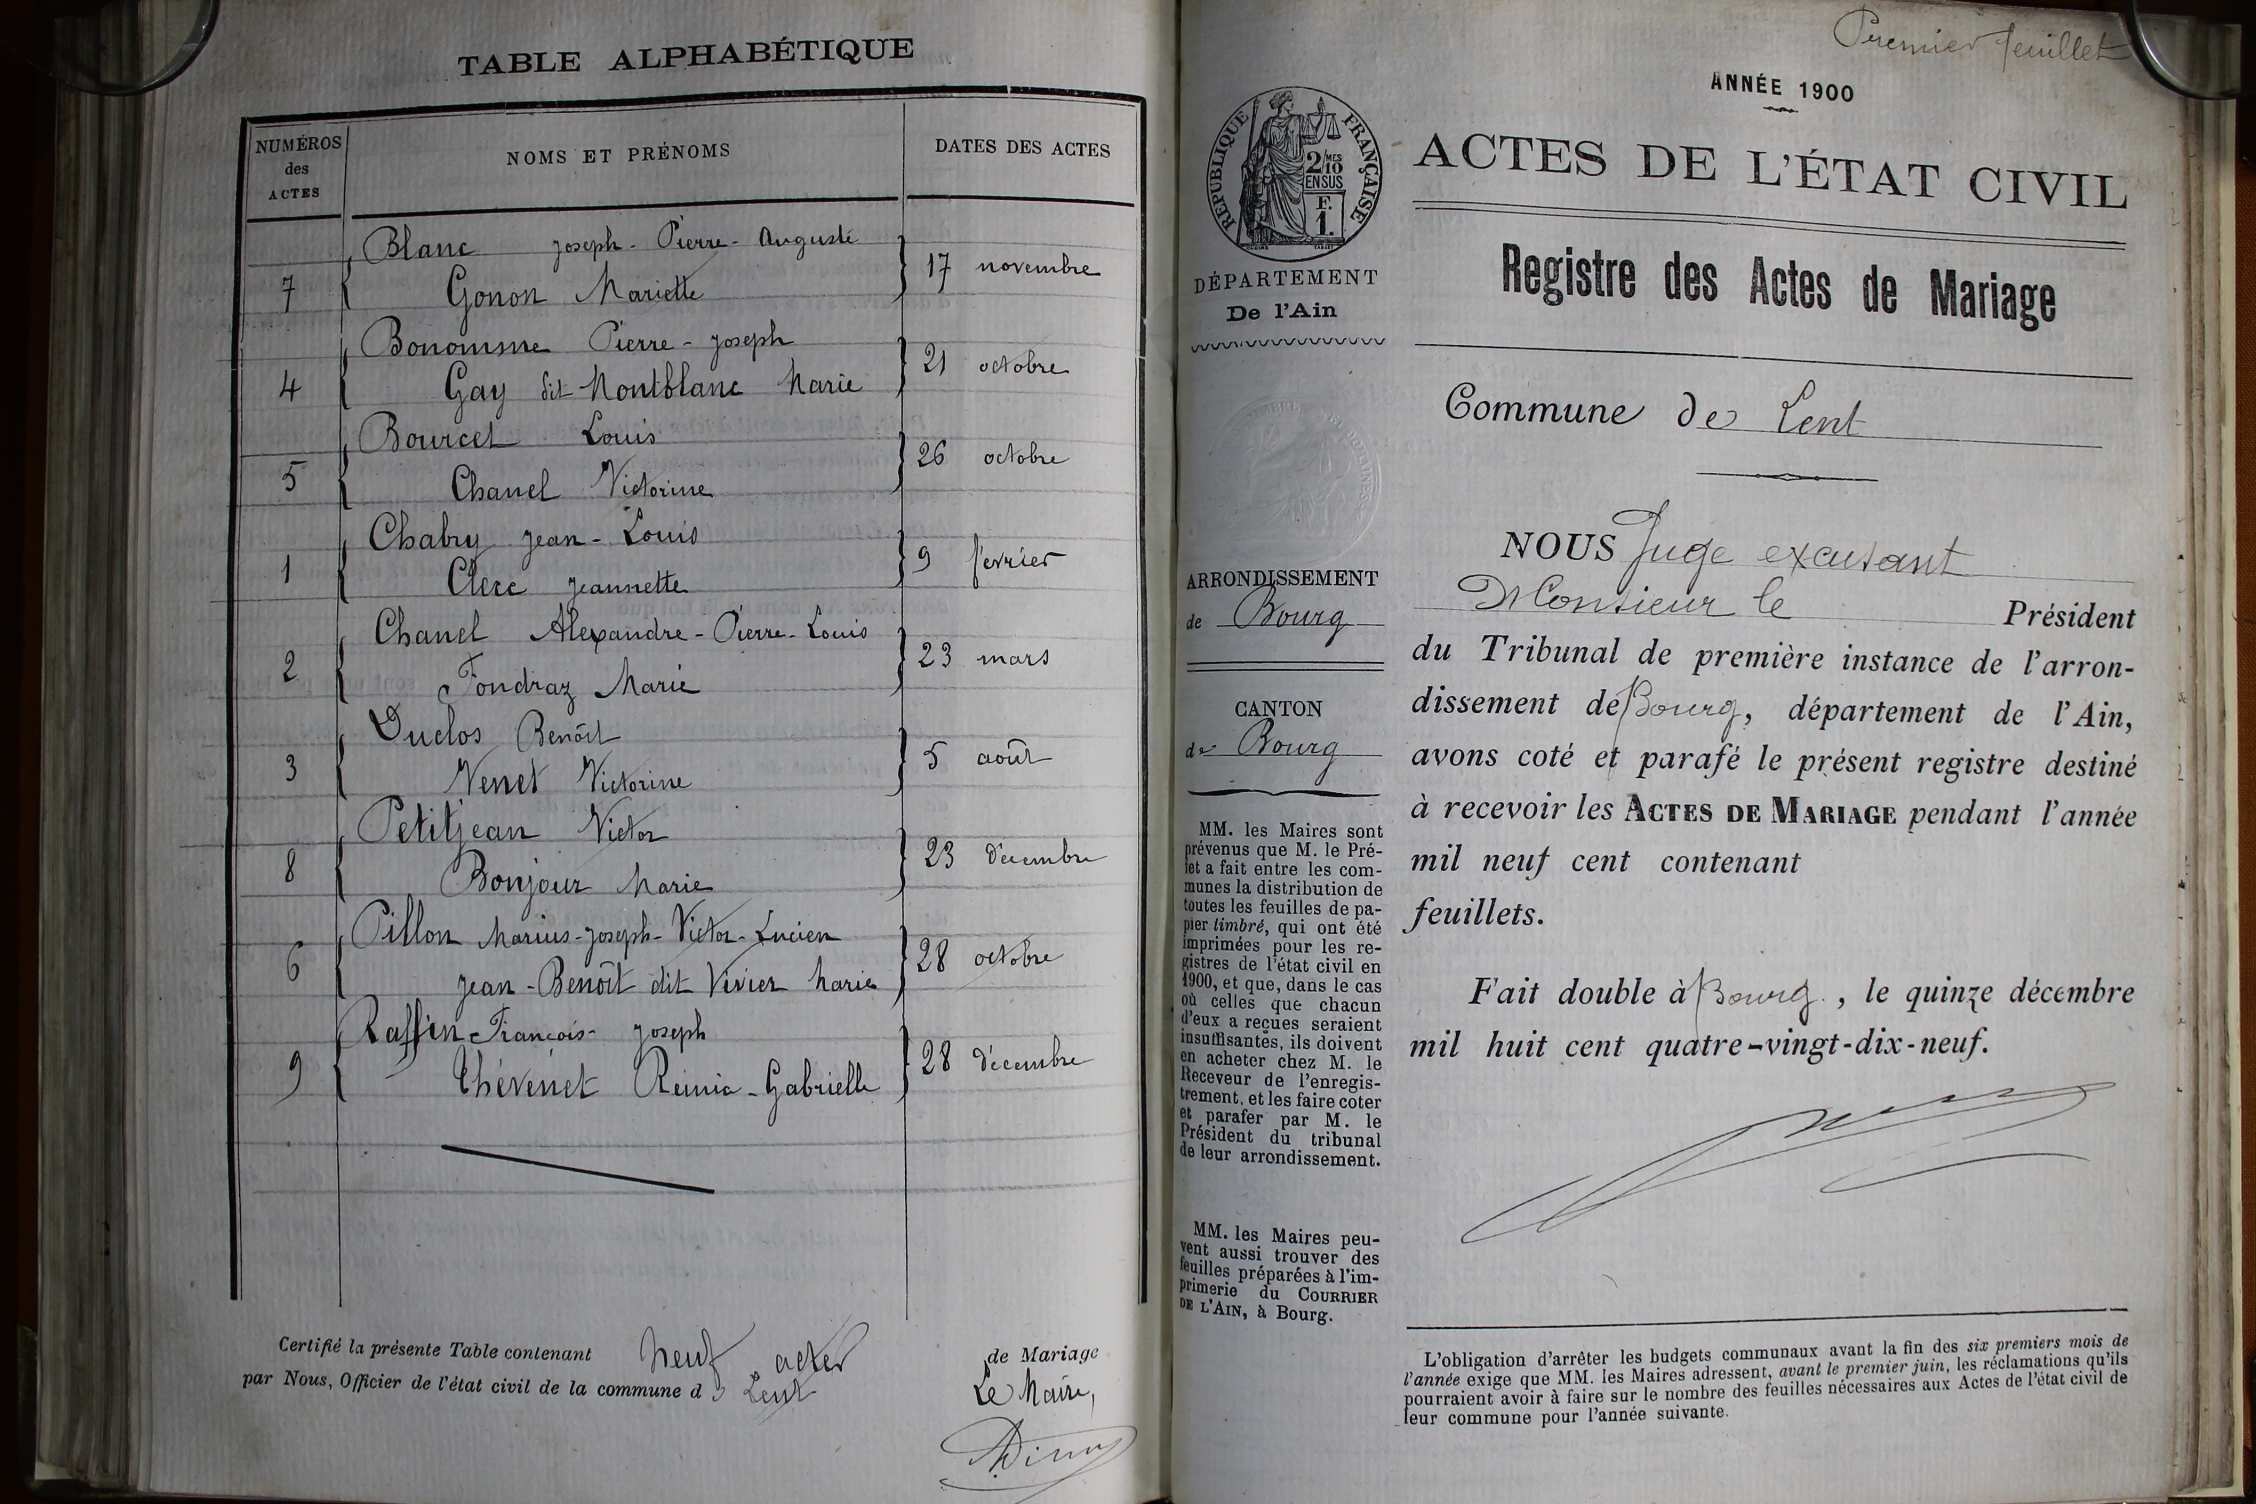 TABLE ALPHABÉTIQUE
NUMÉROS
des
ACTES
NOMS ET PRÉNOMS
DATES DES ACTES
Blanc Joseph-Pierre-Auguste
7 Gonon Mariette 17 novembre
Bonomme Pierre-Joseph
4 Gay dit Montblanc Marie 21 octobre
Bourcet Louis
5 Chanel Victorine 26 octobre
Chabry Jean-Louis
1 Clerc Jeannette 9 février
Chanel Alexandre-Pierre-Louis
2 Fondraz Marie 23 mars
Duclos Benoît
3 Venet Victorine 5 août
Petitjean Victor
8 Bonjour Marie 23 décembre
Pillon Marius-Joseph-Victor-Lucien
6 Jean-Benoît dit Vivier Marie 28 octobre
Raffin François-Joseph
9 Thévenet Gabrielle 28 décembre
Certifié la présente Table contenant neuf actes de Mariage
par Nous, Officier de l'état civil de la commune de Lent
Le Maire,
Premier feuillet
ANNÉE 1900
RÉPUBLIQUE FRANÇAISE
2/10MES
EN SUS
F.
1.
DÉPARTEMENT
De l'Ain
ARRONDISSEMENT
de Bourg
CANTON
de Bourg
MM. les Maires sont
prévenus que M. le Pré-
fet a fait entre les com-
munes la distribution de
toutes les feuilles de pa-
pier timbré, qui ont été
imprimées pour les re-
gistres de l'état civil en
1900, et que, dans le cas
où celles que chacun
d'eux a reçues seraient
insuffisantes, ils doivent
en acheter chez M. le
Receveur de l'enregis-
trement, et les faire coter
et parafer par M. le
Président du tribunal
de leur arrondissement.
MM. les Maires peu-
vent aussi trouver des
feuilles préparées à l'im-
primerie du COURRIER
DE L'AIN, à Bourg.
ACTES DE L'ÉTAT CIVIL
Registre des Actes de Mariage
Commune de Lent
NOUS Juge excusant
Monsieur le Président
du Tribunal de première instance de l'arron-
dissement de Bourg, département de l'Ain,
avons coté et parafé le présent registre destiné
à recevoir les ACTES DE MARIAGE pendant l'année
mil neuf cent contenant
feuillets.
Fait double à Bourg, le quinze décembre
mil huit cent quatre-vingt-dix-neuf.
L'obligation d'arrêter les budgets communaux avant la fin des six premiers mois de
l'année exige que MM. les Maires adressent, avant le premier juin, les réclamations qu'ils
pourraient avoir à faire sur le nombre des feuilles nécessaires aux Actes de l'état civil de
leur commune pour l'année suivante.